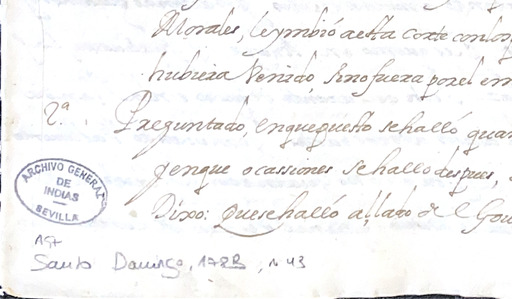 Morales, leymbió aesta corte conlos
hubiera Venido, sinofuera porel em
2ª. Preguntado, enquepuesto sehalló quan
yenque ocassiones sehallodespues,
Dixo: Quesehalló allado del Gou
ARCHIVO GENERAL
DE
INDIAS
SEVILLA
Santo Domingo, 178B, N 43